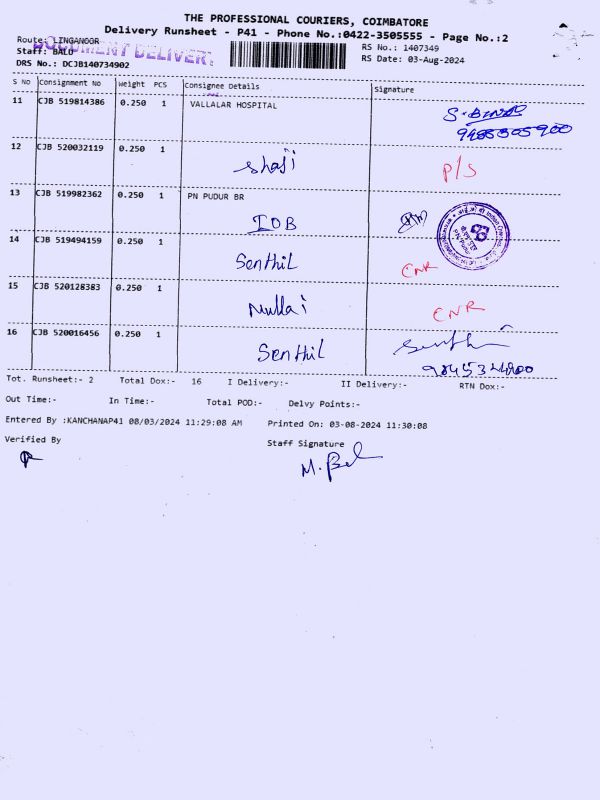 THE PROFESSIONAL COURIERS, COIMBATORE
Delivery Runsheet - P41 - Phone No.:0422-3505555 - Page No.:2
Route: LINGANOOR
DOCUMENT DELIVERY
RS No.: 1407349
Staff: BALU
RS Date: 03-Aug-2024
DRS No.: DCJB140734902
S No Consignment No Weight PCS Consignee Details Signature
11 CJB 519814386 0.250 1 VALLALAR HOSPITAL
12 CJB 520032119 0.250 1
Shaji P/S
13 CJB 519982362 0.250 1 PN PUDUR BR
IOB
14 CJB 519494159 0.250 1
Senthil CNR
15 CJB 520128383 0.250 1
Mullai CNR
16 CJB 520016456 0.250 1
Senthil
Tot. Runsheet:- 2 Total Dox:- 16 I Delivery:- II Delivery:- RTN Dox:-
Out Time:- In Time:- Total POD:- Delvy Points:-
Entered By :KANCHANAP41 08/03/2024 11:29:08 AM Printed On: 03-08-2024 11:30:08
Verified By Staff Signature